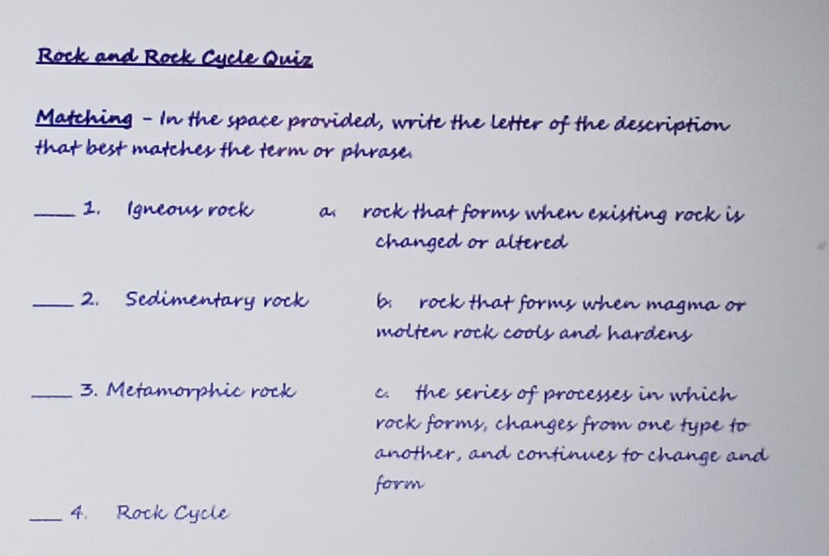 Rock and Rock Cycle Quiz
Matching - In the space provided, write the letter of the description
that best matches the term or phrase.
____ 1. Igneous rock a. rock that forms when existing rock is
changed or altered
____ 2. Sedimentary rock b. rock that forms when magma or
molten rock cools and hardens
____ 3. Metamorphic rock c. the series of processes in which
rock forms, changes from one type to
another, and continues to change and
form
____ 4. Rock Cycle